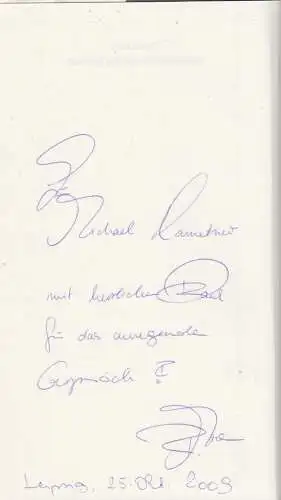 Für
Michael Hametner
mit herzlichem Dank
für das anregende
Gespräch!
Leipzig, 25. Okt. 2009